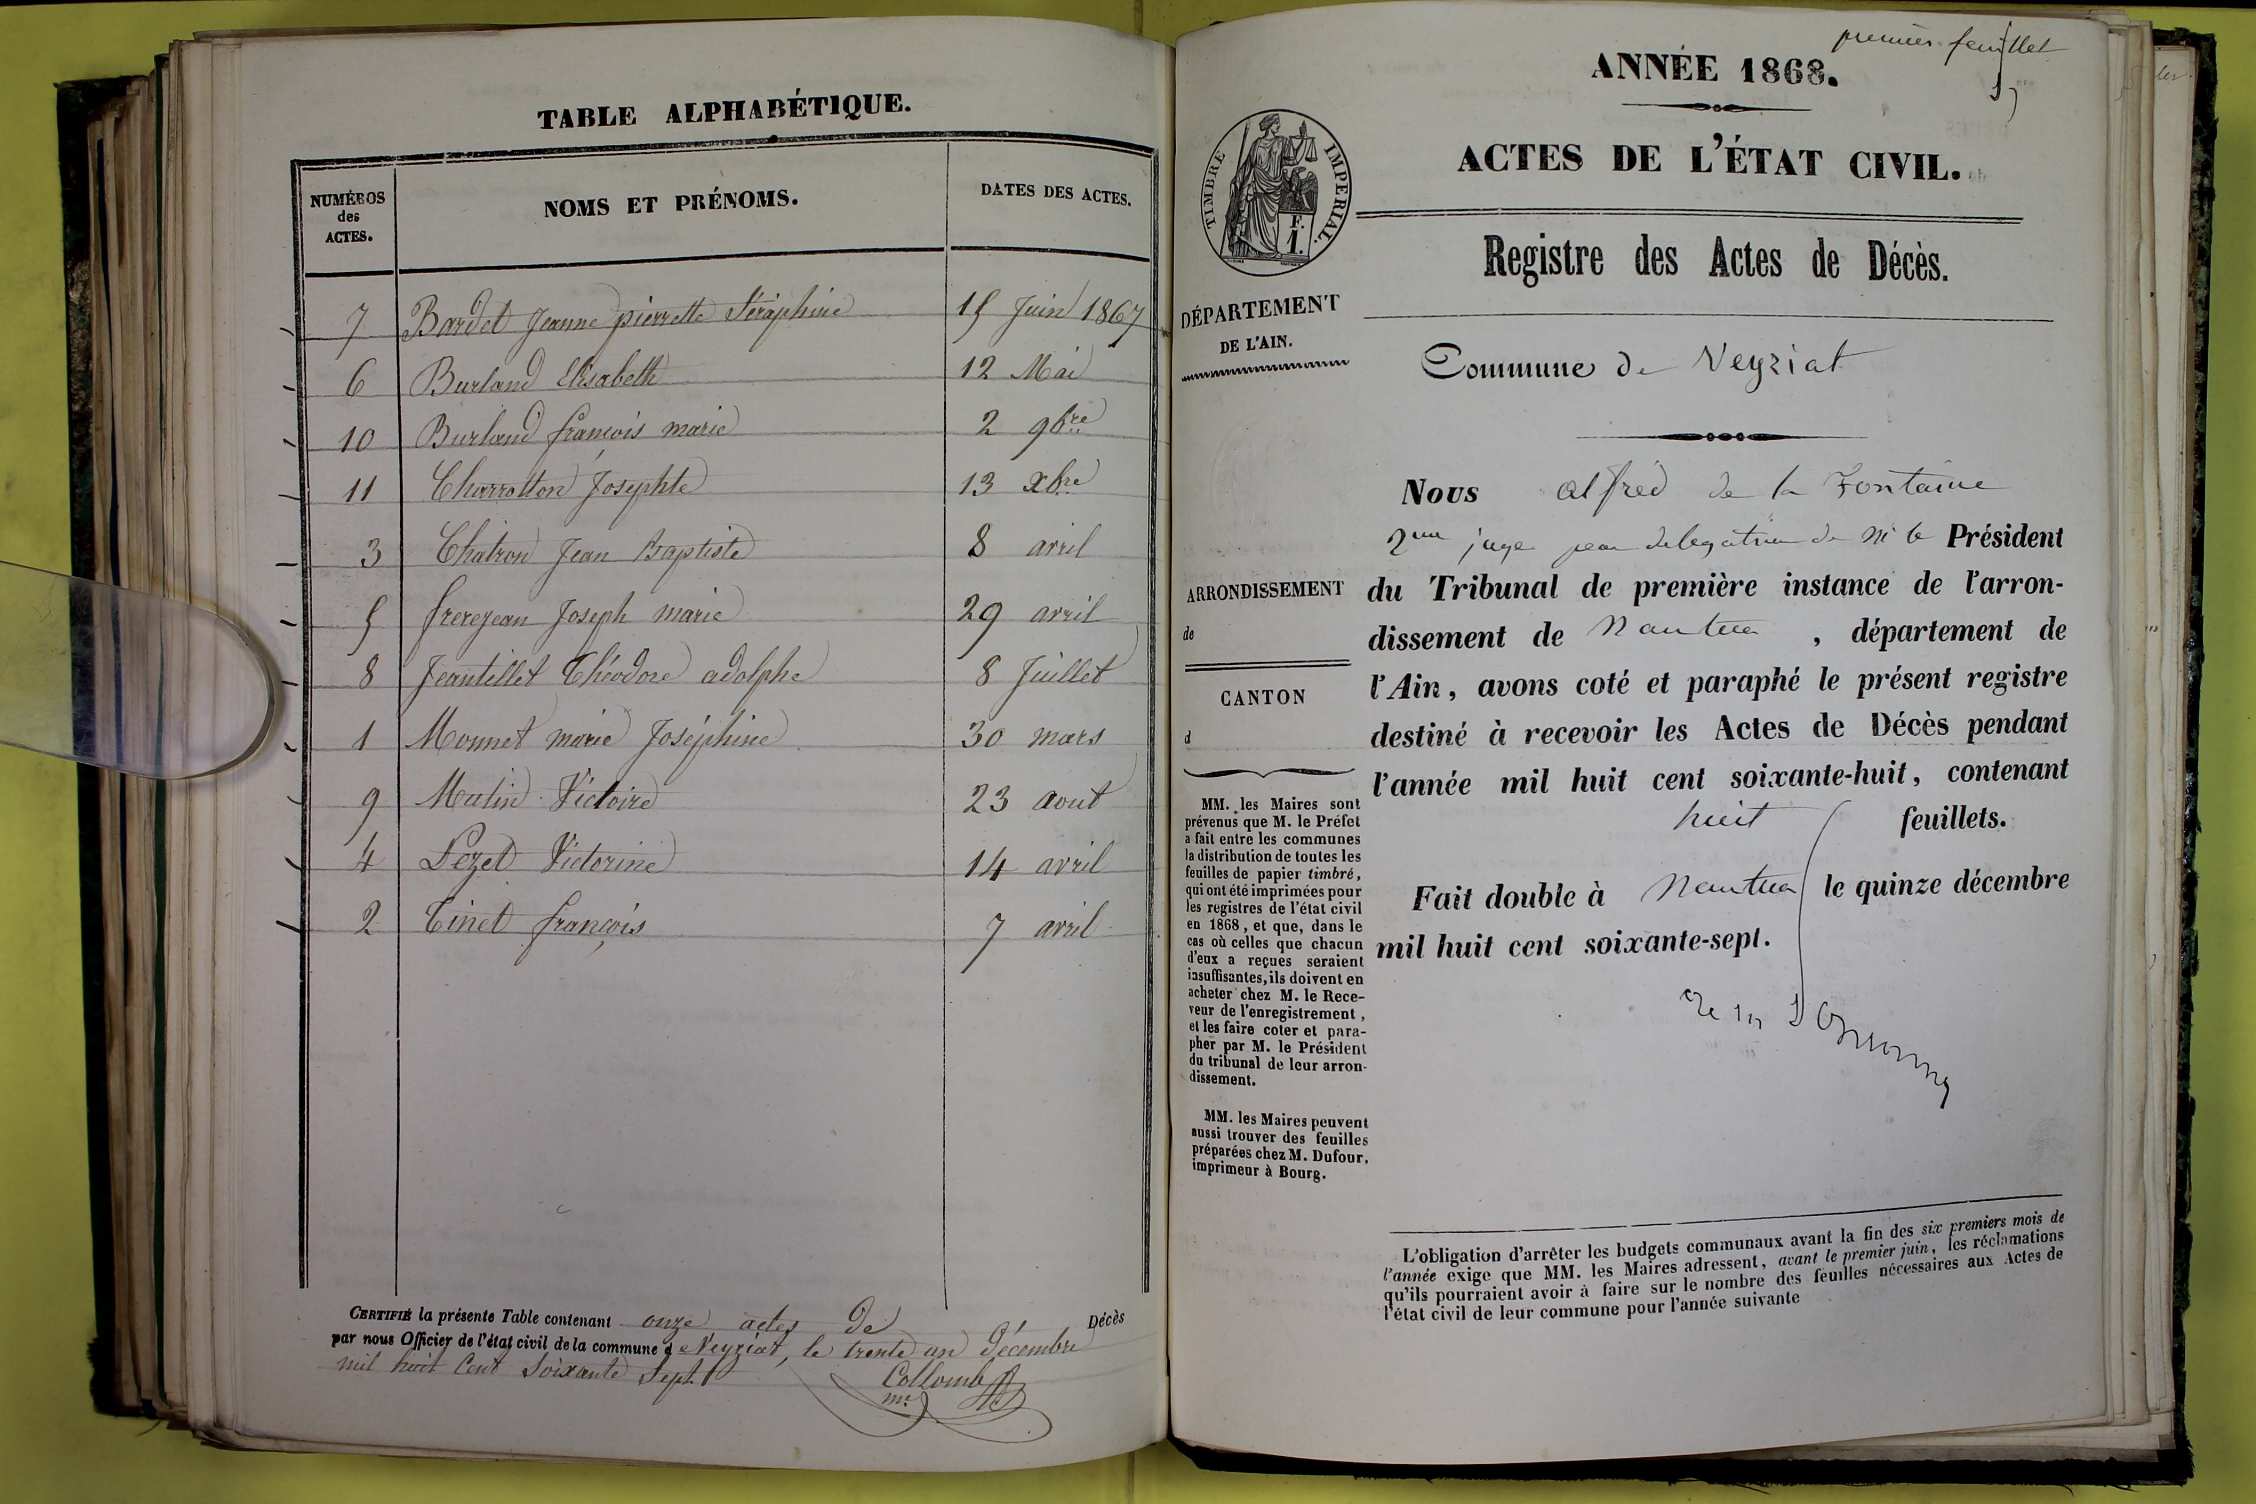 TABLE ALPHABÉTIQUE.
NUMÉROS
des
ACTES.
NOMS ET PRÉNOMS.
DATES DES ACTES.
7 Bardet Jeanne pierrette Séraphine 15 Juin 1867
6 Burland Elisabeth 12 Mai
10 Burland françois marie 2 9bre
11 Charrotton Josephte 13 xbre
3 Chatron Jean Baptiste 8 avril
5 frerejean Joseph marie 29 avril
8 Jeantillet Théodore adolphe 8 Juillet
1 Monnet marie Joséphine 30 mars
9 Matin Victoire 23 aout
4 Pezet Victorine 14 avril
2 Tinet françois 7 avril
CERTIFIÉ la présente Table contenant onze actes de Décès
par nous Officier de l'état civil de la commune de Neyriat, le trente un Décembre
mil huit Cent Soixante Sept
Collomb
mre
premier feuillet
ANNÉE 1868.
ACTES DE L'ÉTAT CIVIL.
TIMBRE IMPERIAL.
F.
1.
Registre des Actes de Décès.
DÉPARTEMENT
DE L'AIN.
Commune de Neyriat
Nous Alfred de la Fontaine
2me juge par delegation de M le Président
du Tribunal de première instance de l'arron-
dissement de Nantua, département de
l'Ain, avons coté et paraphé le présent registre
destiné à recevoir les Actes de Décès pendant
l'année mil huit cent soixante-huit, contenant
huit feuillets.
Fait double à Nantua le quinze décembre
mil huit cent soixante-sept.
ARRONDISSEMENT
de
CANTON
d
MM. les Maires sont
prévenus que M. le Préfet
a fait entre les communes
la distribution de toutes les
feuilles de papier timbré,
qui ont été imprimées pour
les registres de l'état civil
en 1868, et que, dans le
cas où celles que chacun
d'eux a reçues seraient
insuffisantes, ils doivent en
acheter chez M. le Rece-
veur de l'enregistrement,
et les faire coter et para-
pher par M. le Président
du tribunal de leur arron-
dissement.
MM. les Maires peuvent
aussi trouver des feuilles
préparées chez M. Dufour,
imprimeur à Bourg.
L'obligation d'arrêter les budgets communaux avant la fin des six premiers mois de
l'année exige que MM. les Maires adressent, avant le premier juin, les réclamations
qu'ils pourraient avoir à faire sur le nombre des feuilles nécessaires aux Actes de
l'état civil de leur commune pour l'année suivante